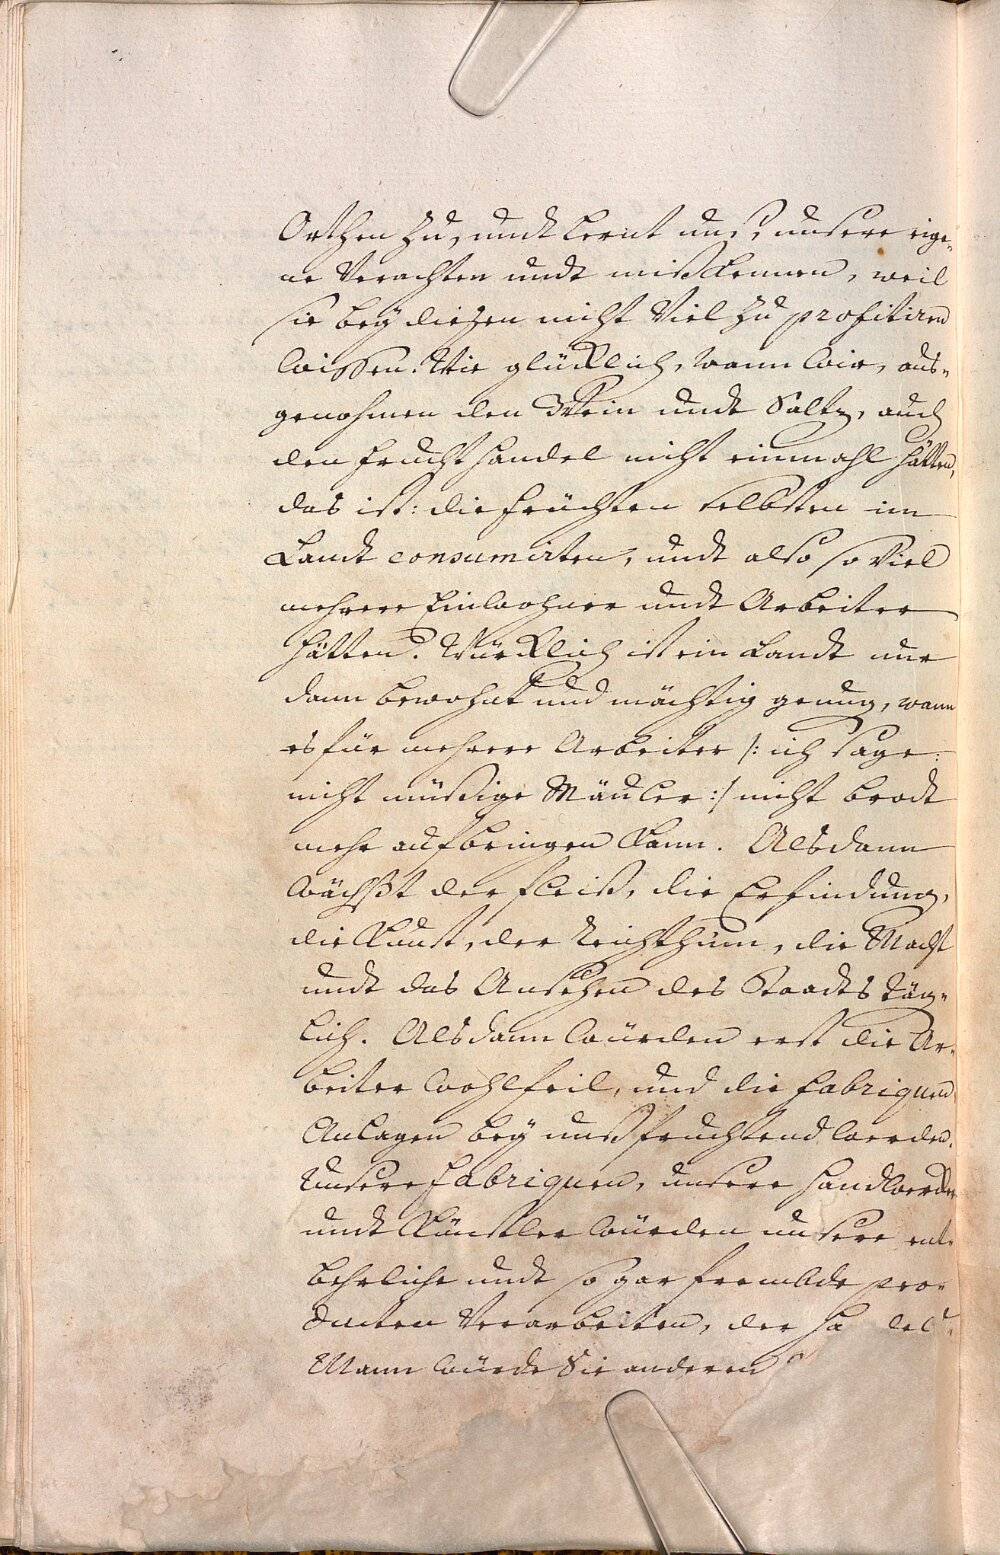 Orthen zu, undt lernt uns, unsere eige-
ne Verachten undt mißkennen, weil
sie beÿ diesen nicht Viel zu profitiren
wissen. Wie glücklich, wann wir, aus-
genohmen den Wein undt Saltz, auch
den fruchthandel nicht einmahl hätten,
das ist: die früchten selbsten im
Landt consumirten, undt also so Viel
mehrere Einwohner undt Arbeiter
hätten? Würcklich ist ein Landt nur
dann bewohnt und mächtig genug, wann
es für mehrere Arbeiter /: ich sage
nicht müßige Mäuler :/ nicht brodt
mehr aufbringen kann. Alsdann
wächßt der fleiß, die Erfindung,
die Kunst, der Reichthum, die Macht
undt das Ansehen des Staadts täg-
lich. Alsdann würden erst die Ar-
beiter wohlfeil, und die fabriquen
Anlagen beÿ unß fruchtend werden.
Unsere fabriquen, unsere handwercker
undt Künstler würden unsere ent-
behrliche undt sogar frembde pro-
ducten Verarbeiten, der ha dels-
Mann würde Sie anderen